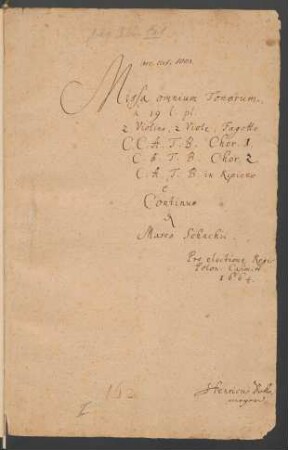 Missa omnium Tonorum.
à 19 l. pl
2 Violini, 2 Viole, Fagotto
C.C.A.T.B. Chor. 1.
C.A.T.B. Chor. 2.
C.A.T.B. in Ripieno
e
Continuo
di
Marco Schachii
Pro electione Regis
Polon. Casimiri
1664.
Henricus